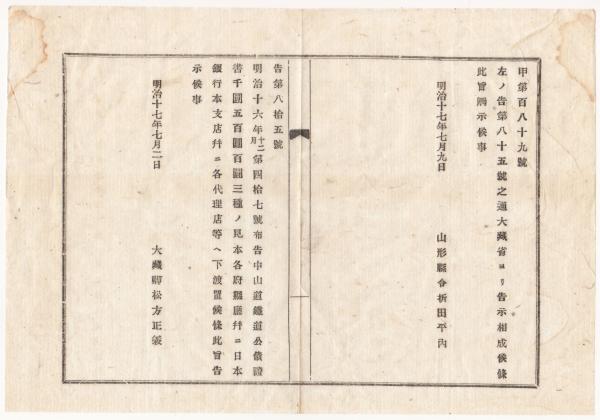 甲第百八十九號
左ノ告第八十五號之通大藏省ヨリ告示相成候條
此旨揭示候事
明治十七年七月九日
山形縣令折田平內
告第八拾五號
明治十六年十二月第四拾七號布告中山道鐵道公債證
書千圓五百圓百圓三種ノ見本各府縣廳幷ニ日本
銀行本支店幷ニ各代理店等ヘ下渡置候條此旨告
示候事
明治十七年七月二日
大藏卿松方正義